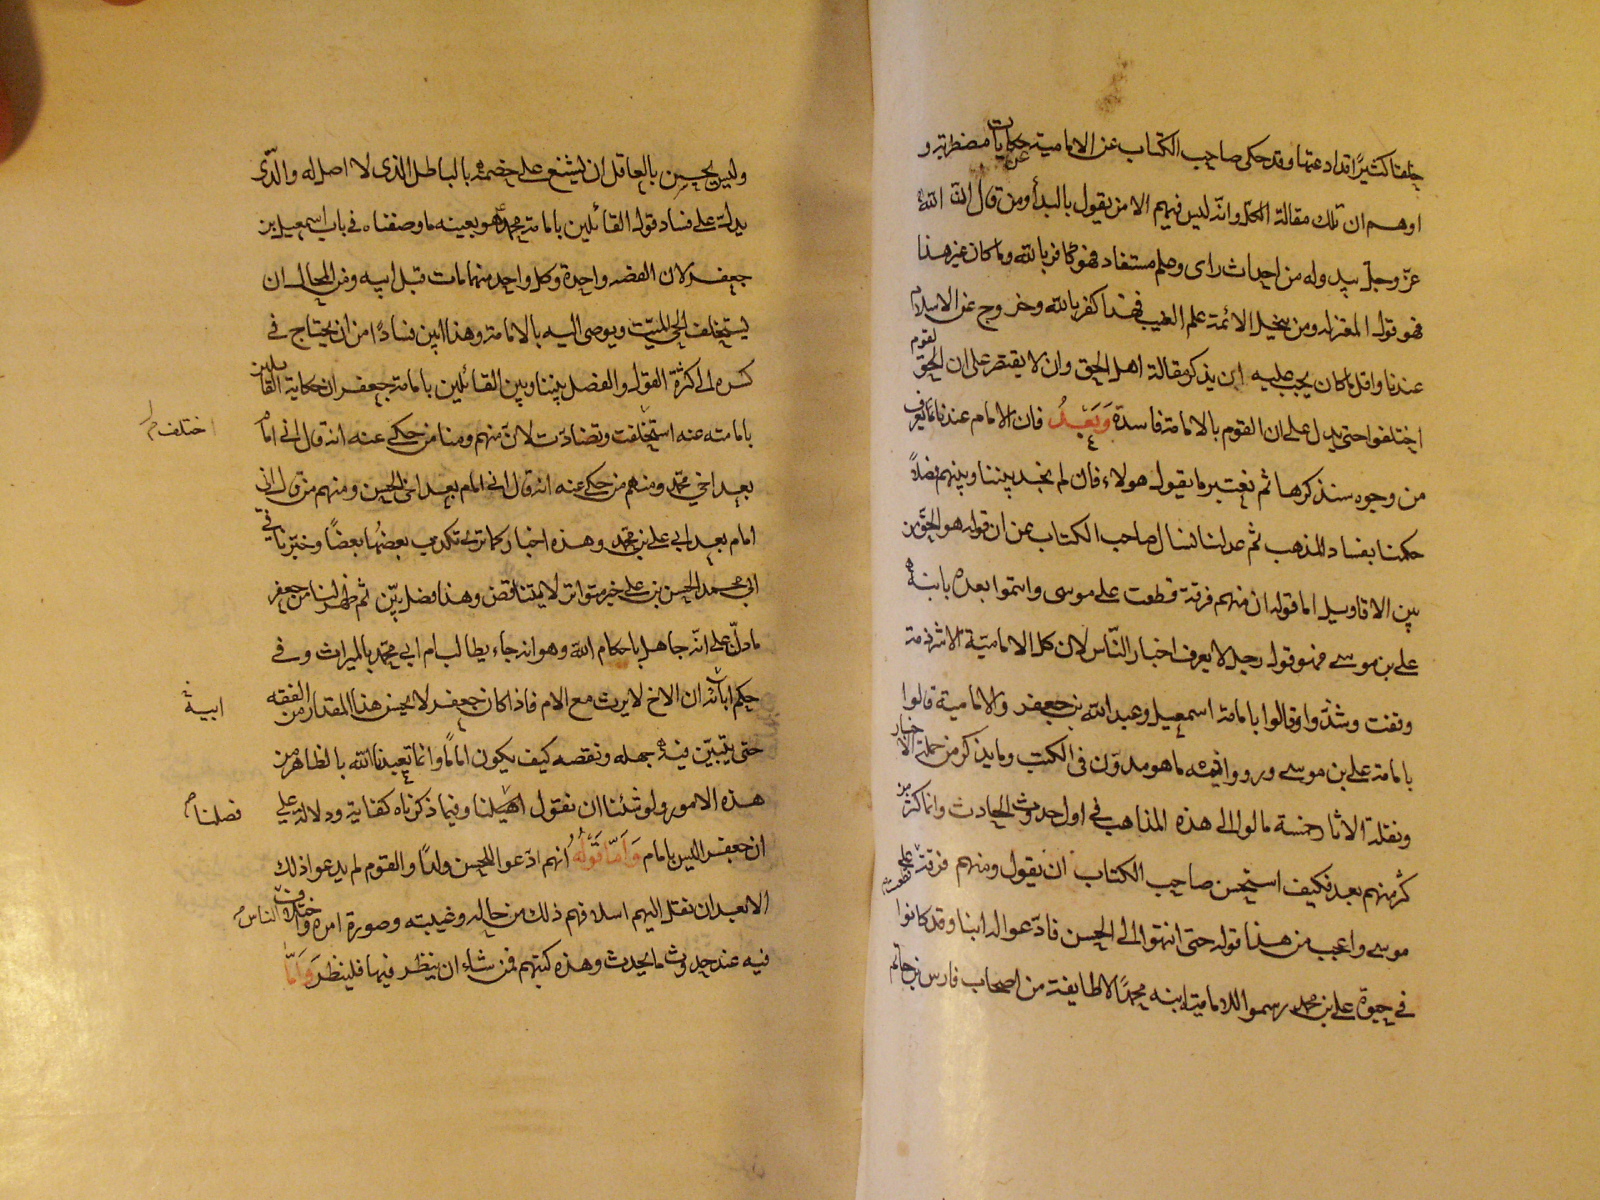 خلقا كثيرًا قد ادعتها وقد حكى صاحب الكتاب عن الامامية حكايات مضطربة و
اوهم ان تلك مقالة الكل وانه ليس فيهم الا من يقول بالبدأ ومن قال ان الله
عز وجل يبدو له من احداث راى وعلم مستفاد فهو كافر بالله وما كان غير هذا
فهو قول المغيرية ومن ينحل الائمة علم الغيب فهذا كفر بالله وخروج عن الاسلام
عندنا واقل ما كان يجب عليه ان يذكر مقالة اهل الحق وان لا يقتصر على ان القوم
اختلفوا حتى يدل على ان القوم بالامامة فاسدة وَبَعْدُ فان الامام عندنا يعرف
من وجوه سنذكرها ثم نعتبر ما يقول هولاء فان لم نجد بيننا وبينهم فصلاً
حكمنا بفساد المذهب ثم عدلنا نسال صاحب الكتاب عن ان قول هو الحق من
بين الاقاويل اما قوله ان منهم فرقة قطعت على موسى وائتموا بعده بابنه
على بن موسى فهو قول رجل لا يعرف اخبار الناس لان كل الامامية الا شرذمة
وقفت وشذوا وقالوا بامامة اسمعيل وعبد الله بن جعفر والامامية قالوا
بامامة على بن موسى ورووا فيه ما هو مدون فى الكتب وما يذكر من حملة الاخبار
ونقلة الاثار خمسة مالوا الى هذه المذاهب فى اول حدوث الحادث وانما كثر من
كثر منهم بعد فكيف استحسن صاحب الكتاب ان يقول ومنهم فرقة قطعت على
موسى واعجب من هذا قوله حتى انتهوا الى الحسن فادعوا له ابنا وقد كانوا
فى حيوة على بن محمد رسموا للامامة ابنه محمدًا الا طايفة من اصحاب فارس بن حاتم
وليس يحسن بالعاقل ان يشنع على خصمه بالباطل الذى لا اصل له والذى
يدل على فساد قول القائلين بامامة محمد هو بعينه ما وصفناه فى باب اسمعيل بن
جعفر لان القصه واحدة وكل واحد منهما مات قبل ابيه ومن المحال ان
يستخلف الحى الميت ويوصى اليه بالامامة وهذا ابين فسادًا من ان يحتاج فى
كسره الى كثرة القول والفصل بيننا وبين القائلين بامامة جعفر ان حكاية القائلين
بامامته عنه استخلفت وتضادت لان منهم ومنا من حكى عنه انه قال انى امام
اختلف
بعد اخى محمد ومنهم من حكى عنه انه قال انى امام بعد اخى الحسن ومنهم من قال انى
امام بعد ابى على بن محمد وهذه اخبار كما ترى تكذب بعضها بعضًا وخبرنا فى
ابى محمد الحسن بن على خبر متواتر لا يتناقض وهذا فصل بيّن ثم ظهر لنا من جعفر
ما دل على انه جاهل باحكام الله وهو انه جاء يطالب ام ابى محمد بالميراث وفى
حكم ابائه ان الاخ لا يرث مع الام فاذا كان جعفر لا يحسن هذا المقدار من الفقه
حتى يتبين فيه جهله ونقصه كيف يكون امامًا وانما تعبدنا الله بالظاهر من
هذه الامور ولو شئنا ان نقول لقلنا وفيما ذكرناه كفاية ودلالة على
ان جعفر ليس بامام وَاَمّا قَوْلُه انهم ادعوا للحسن ولدًا والقوم لم يدعوا ذلك
الا بعد ان نقل اليهم اسلافهم ذلك من حاله وغيبته وصورة امره واختلاف الناس
فيه عند حدوث ما يحدث وهذه كتبهم فمن شاء ان ينظر فيها فلينظر وَاَمّا